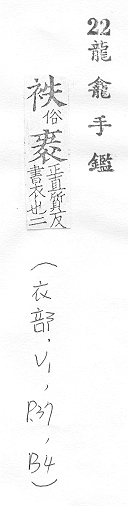 22龍龕手鑑
袟俗袠正直質反書衣也二
(衣部,V1,P.37,B4)